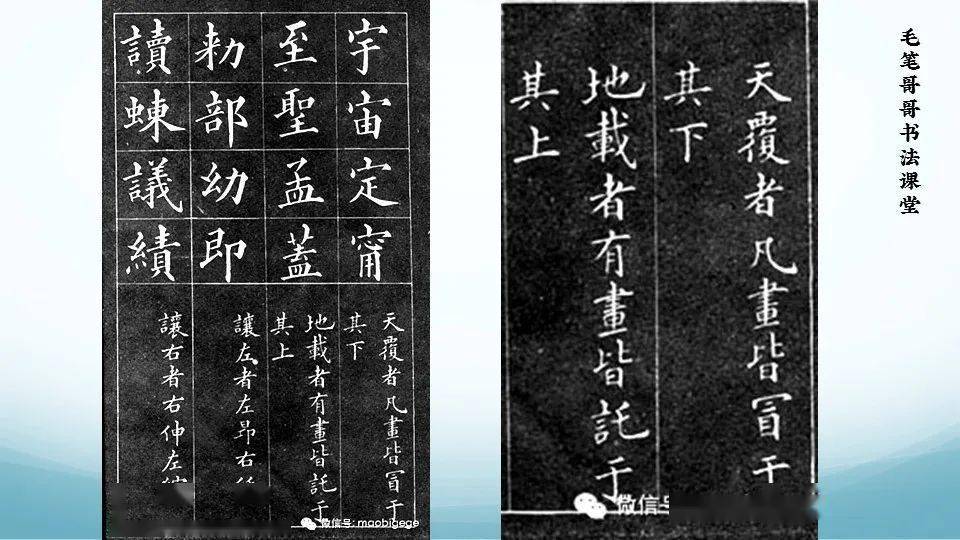 宇宙定甯
至聖孟蓋
勑部幼即
讀蝀議績
天覆者凡畫皆冒于
其下
地載者有畫皆託于
其上
讓左者左昂右
讓右者右伸左
微信号: maobigege
天覆者凡畫皆冒于
其下
地載者有畫皆託于
其上
微信号
毛笔哥哥书法课堂